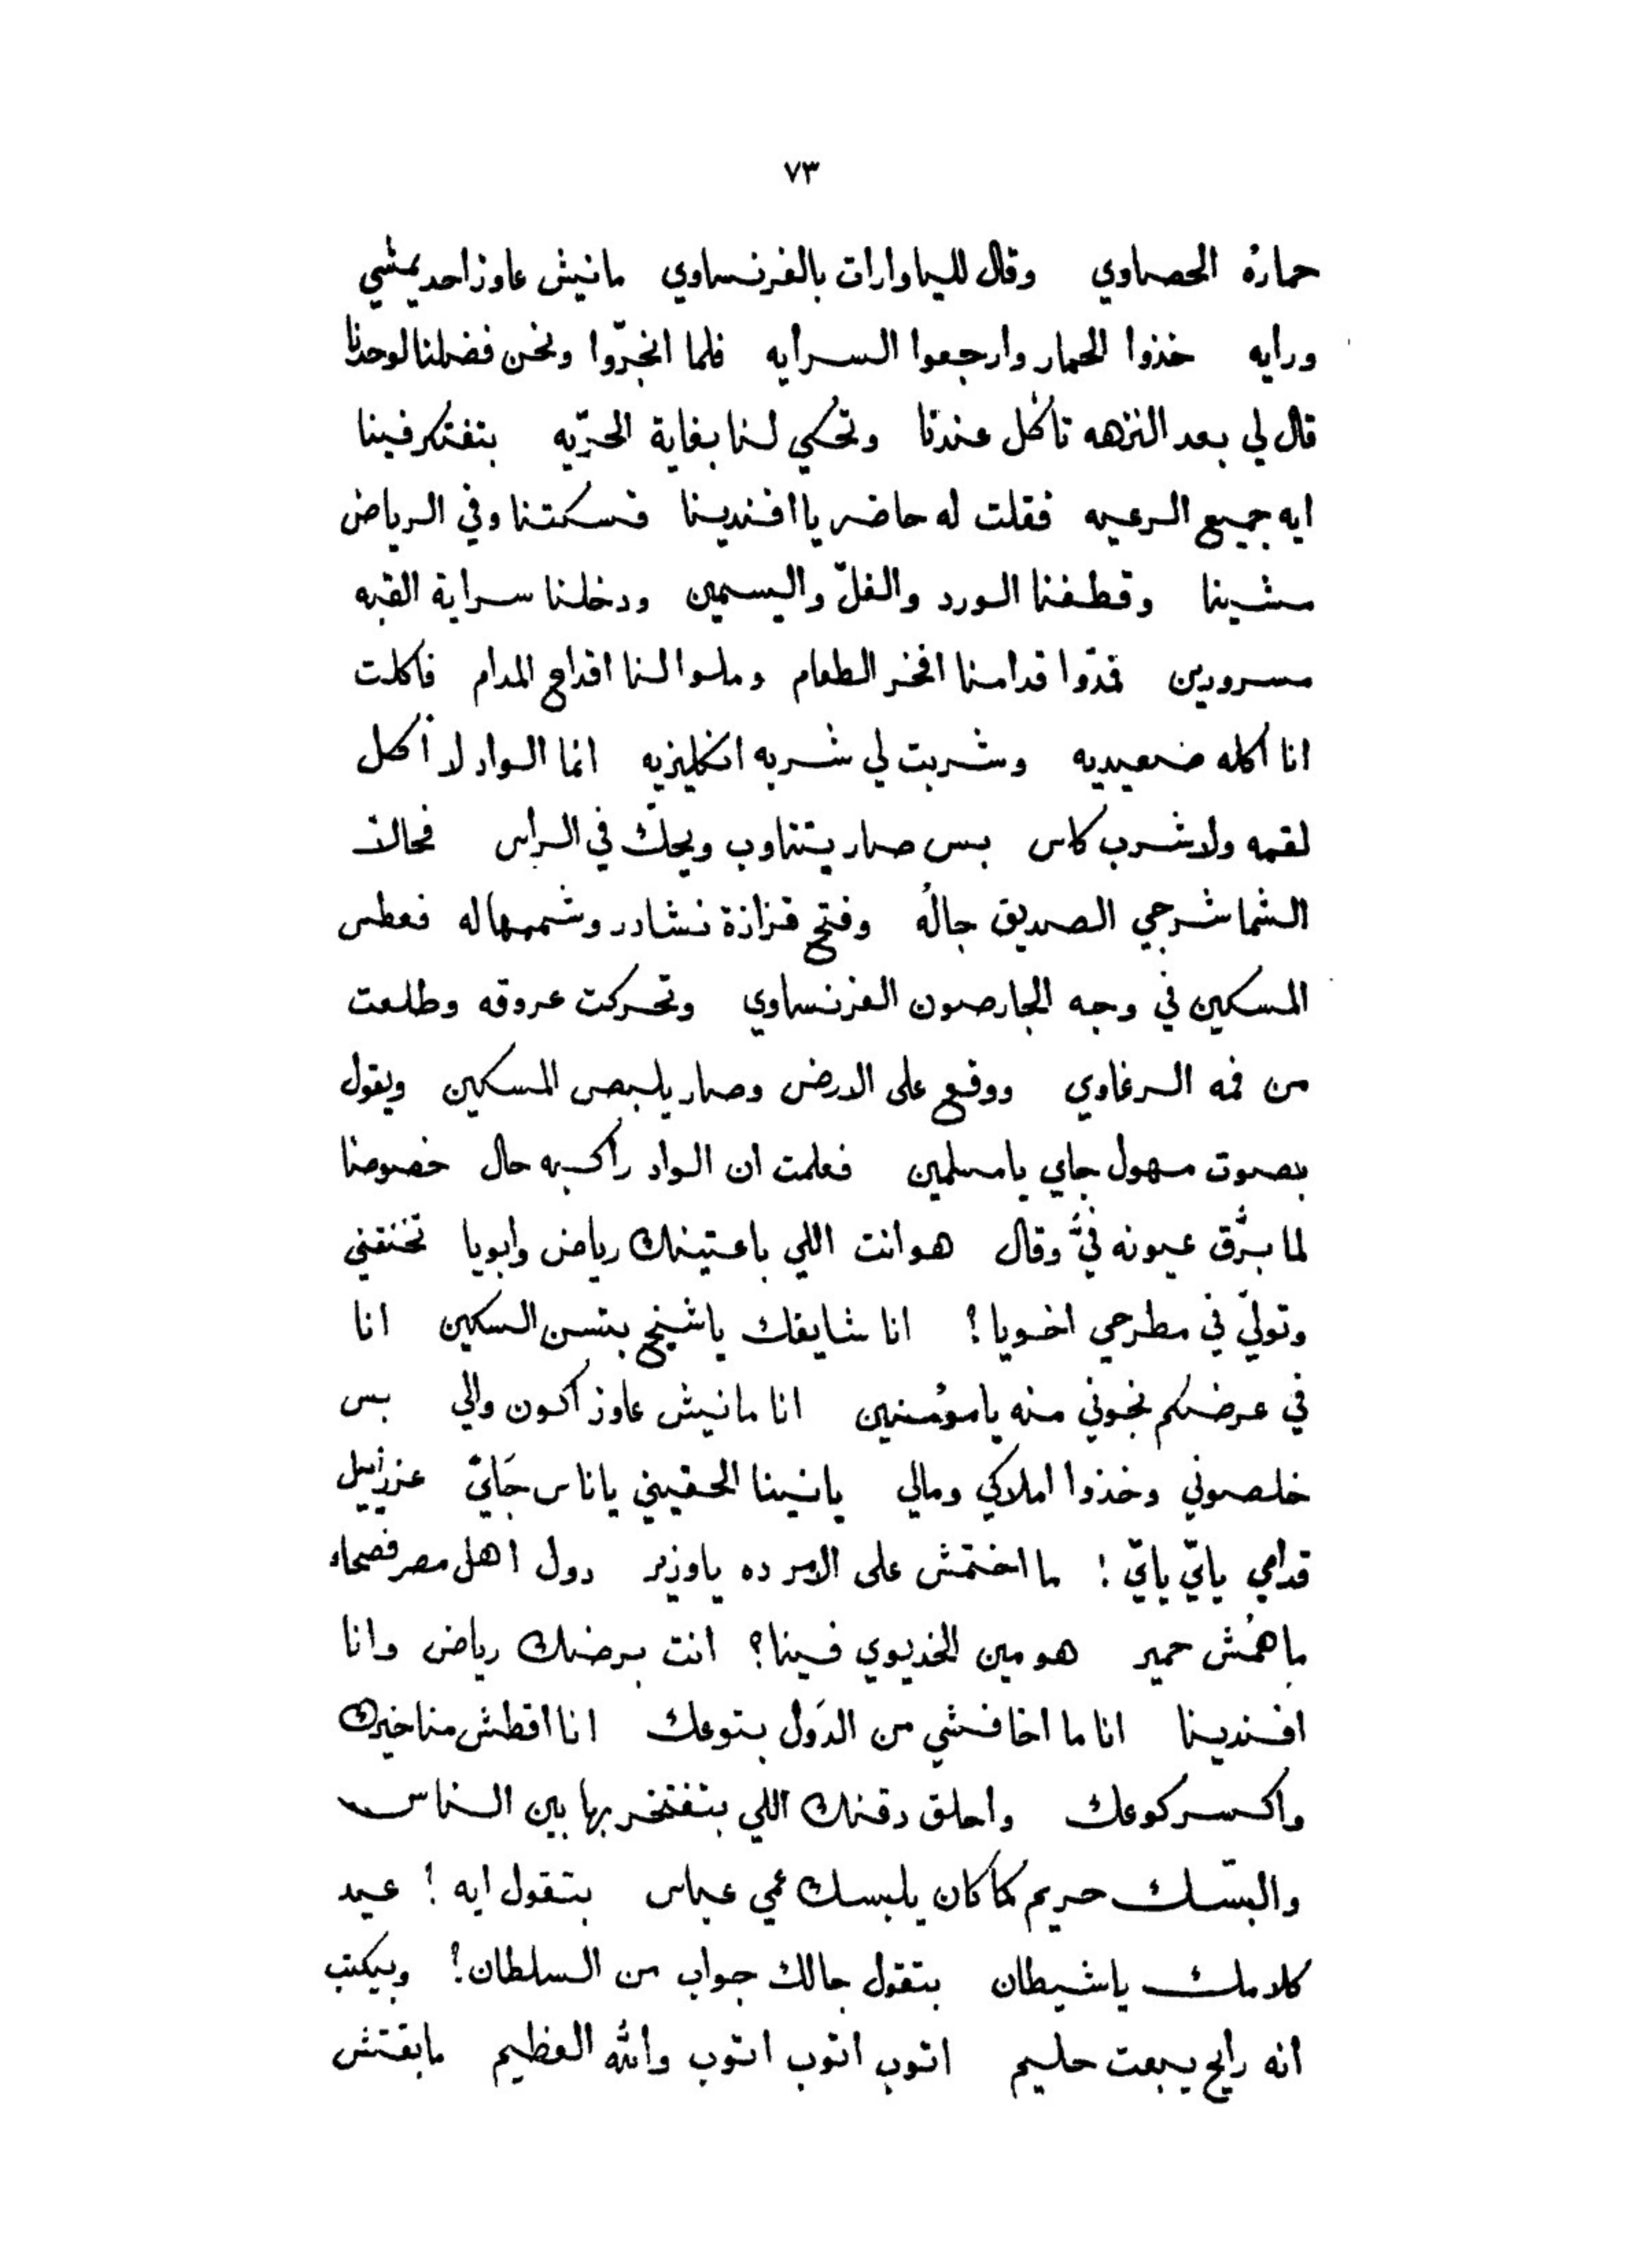 ٧٣
حماره الحصاوي وقال للياوارات بالفرنساوي مانيش عاوز احد يمشي
ورايه خذوا الحمار وارجعوا السرايه فلما انجرّوا ونحن فضلنا لوحدنا
قال لي بعد النزهه تاكل عندنا وتحكي لنا بغاية الحرّيه بتفتكر فينا
ايه جميع الرعيه فقلت له حاضر يا افندينا فسكتنا وفي الرياض
مشينا وقطفنا الورد والفلّ واليسمين ودخلنا سراية القبه
مسرورين فمدّوا قدامنا افخر الطعام وملوا لنا اقداح المدام فاكلت
انا اكله صعيديه وشربت لي شربه انكليزيه انما الواد لا أكل
لقمه ولا شرب كاس بس صار يتناوب ويحكّ في الراس فحالاً
الشماشرجي الصديق جالُه وفتح قزازة نشادر وشممها له فعطس
المسكين في وجه الجارصون الفرنساوي وتحركت عروقه وطلعت
من فمه الرغاوي ووقع على الارض وصار يلبص المسكين ويقول
بصوت مهول جاي يا مسلمين فعلمت ان الواد راكبه حال خصوصًا
لما برّق عيونه فيَّ وقال هو انت اللي باعتينك رياض وابويا تخنقني
وتولّي في مطرحي اخويا؟ انا شايفك يا شيخ بتسن السكين انا
في عرضكم نجوني منه يا مؤمنين انا مانيش عاوز اكون والي بس
خلصوني وخذوا املاكي ومالي يا نينا الحقيني يا ناس جَايّ عزرايل
قدامي يايّ يايّ! ما اختمش على الامر ده يا وزير دول اهل مصر فصحاء
ماهُمْش حمير هو مين الخديوي فينا؟ انت برضك رياض وانا
افندينا انا ما اخافشي من الدَول بتوعك انا اقطش مناخيرك
واكسر كوعك واحلق دقنك اللي بتفتخر بها بين الناس
والبسّك حريم كما كان يلبسك عمي عباس بتقول ايه! عيد
كلامك يا شيطان بتقول جالك جواب من السلطان؟ وبيكتب
انه رايح يبعت حليم اتوب اتوب اتوب والله العظيم مابقتش